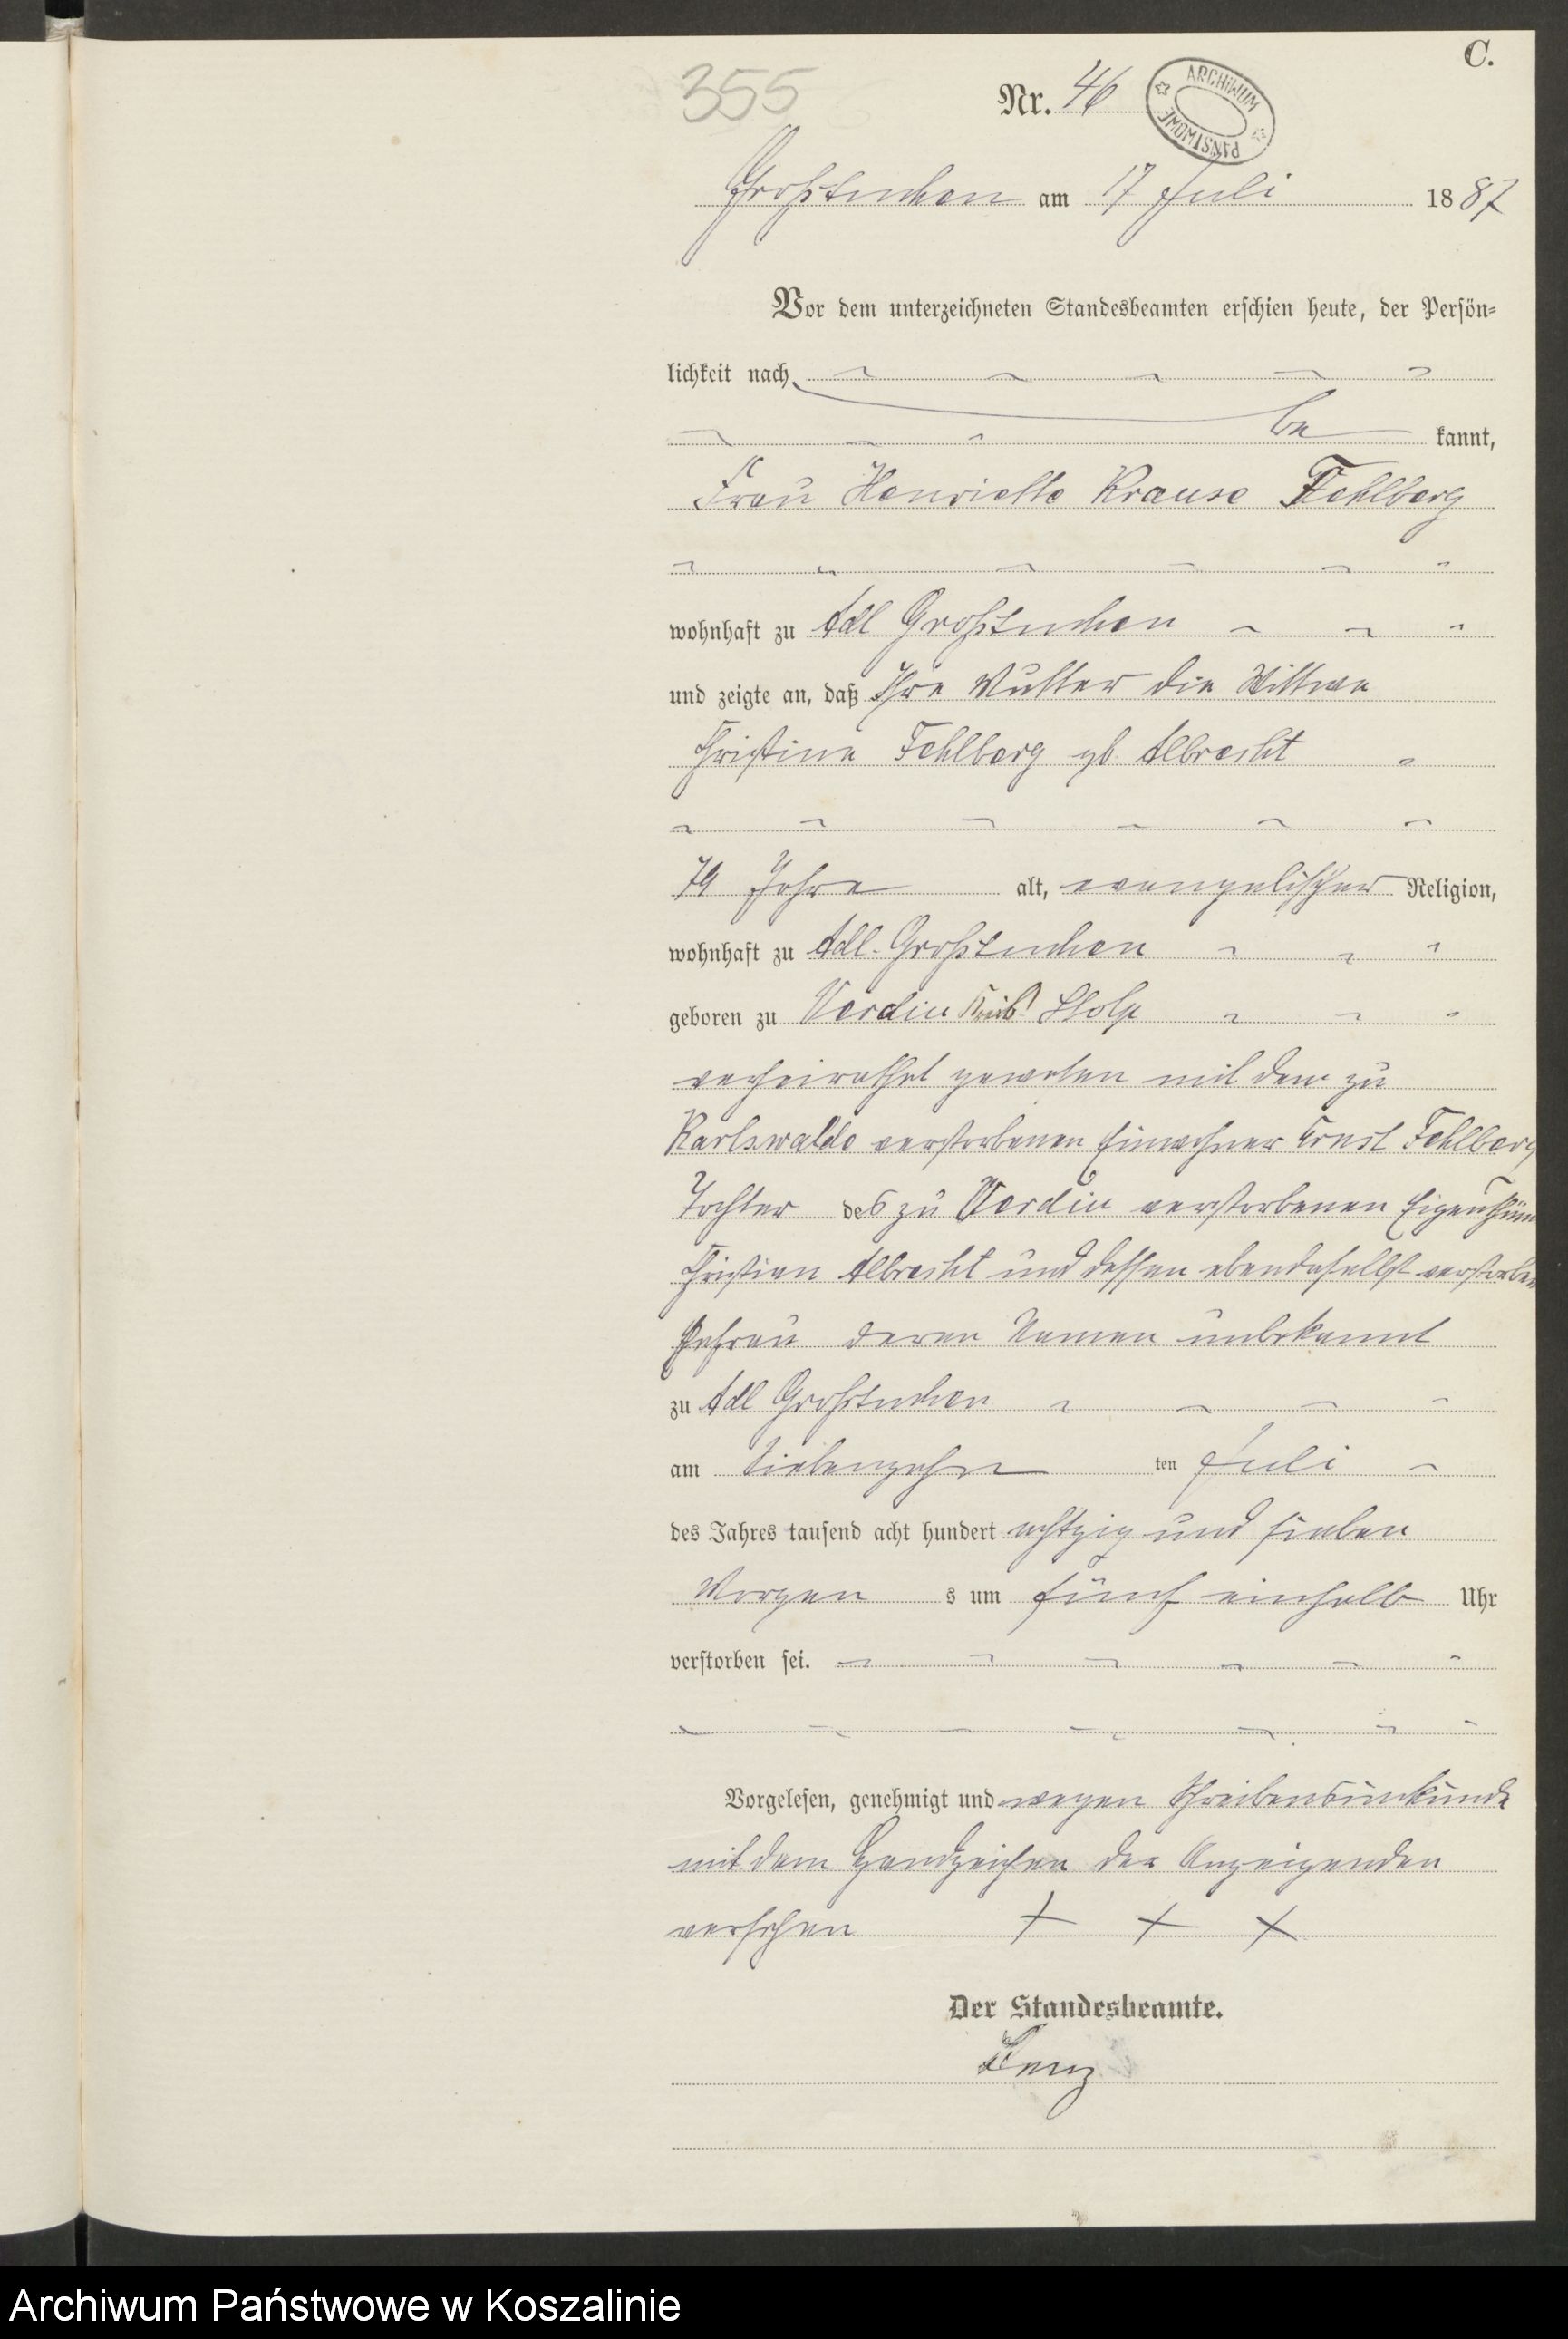 C.
355
Nr. 46
ARCHIWUM PAŃSTWOWE
Großtuchen am 17 Juli 1887
Vor dem unterzeichneten Standesbeamten erschien heute, der Persön-
lichkeit nach
be kannt,
Frau Henriette Krause Fehlberg
wohnhaft zu Adl Großtuchen
und zeigte an, daß Ihre Mutter die Wittwe
Christine Fehlberg gb. Albrecht
79 Jahre alt, evangelischer Religion,
wohnhaft zu Adl. Großtuchen
geboren zu Verdin Kreis Stolp
verheirathet gewesen mit dem zu
Karlswalde verstorbenen Einwohner Ernst Fehlberg
Tochter des zu Verdin verstorbenen Eigenthüm
Christian Albrecht und dessen ebendaselbst verstorben
Ehefrau deren Namen unbekannt
zu Adl Großtuchen
am Siebenzehn ten Juli
des Jahres tausend acht hundert achtzig und sieben
Morgen s um fünf einhalb Uhr
verstorben sei.
Vorgelesen, genehmigt und wegen Schreibensunkunde
mit dem Handzeichen der Anzeigenden
versehen + + +
Der Standesbeamte.
Lenz
Archiwum Państwowe w Koszalinie